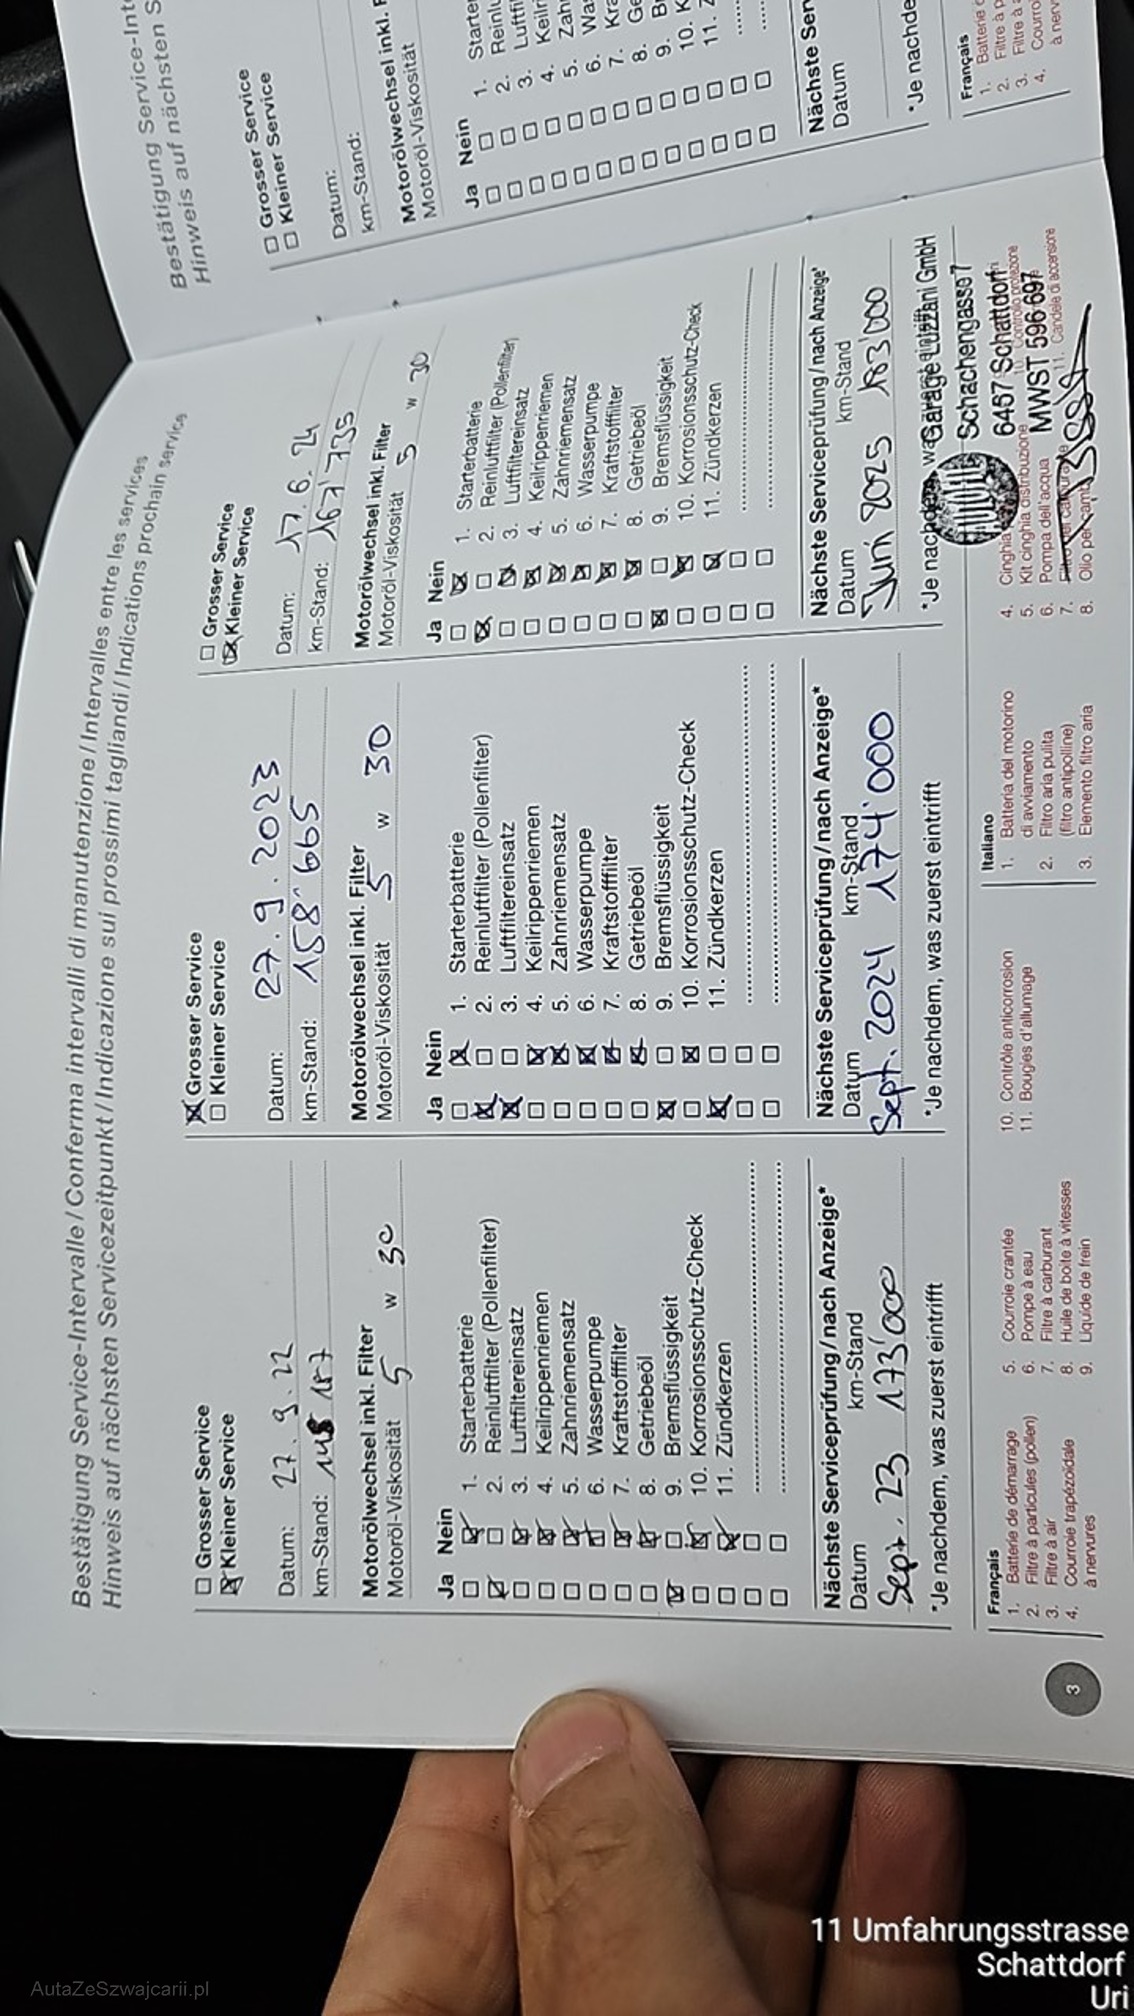 Bestätigung Service-Intervalle / Conferma intervalli di manutenzione / Intervalles entre les services
Hinweis auf nächsten Servicezeitpunkt / Indicazione sui prossimi tagliandi / Indications prochain service
Grosser Service
Kleiner Service
Datum: 27.9.22
km-Stand:
Motorölwechsel inkl. Filter
Motoröl-Viskosität 5 w 30
Ja Nein
1. Starterbatterie
2. Reinluftfilter (Pollenfilter)
3. Luftfiltereinsatz
4. Keilrippenriemen
5. Zahnriemensatz
6. Wasserpumpe
7. Kraftstofffilter
8. Getriebeöl
9. Bremsflüssigkeit
10. Korrosionsschutz-Check
11. Zündkerzen
Nächste Serviceprüfung / nach Anzeige*
Datum km-Stand
Sept. 23 173'000
*Je nachdem, was zuerst eintrifft
Grosser Service
Kleiner Service
Datum: 27.9.2023
km-Stand: 158'665
Motorölwechsel inkl. Filter
Motoröl-Viskosität 5 w 30
Ja Nein
1. Starterbatterie
2. Reinluftfilter (Pollenfilter)
3. Luftfiltereinsatz
4. Keilrippenriemen
5. Zahnriemensatz
6. Wasserpumpe
7. Kraftstofffilter
8. Getriebeöl
9. Bremsflüssigkeit
10. Korrosionsschutz-Check
11. Zündkerzen
Nächste Serviceprüfung / nach Anzeige*
Datum km-Stand
Sept. 2024 174'000
*Je nachdem, was zuerst eintrifft
Grosser Service
Kleiner Service
Datum: 17.6.24
km-Stand: 167'735
Motorölwechsel inkl. Filter
Motoröl-Viskosität 5 w 30
Ja Nein
1. Starterbatterie
2. Reinluftfilter (Pollenfilter)
3. Luftfiltereinsatz
4. Keilrippenriemen
5. Zahnriemensatz
6. Wasserpumpe
7. Kraftstofffilter
8. Getriebeöl
9. Bremsflüssigkeit
10. Korrosionsschutz-Check
11. Zündkerzen
Nächste Serviceprüfung / nach Anzeige*
Datum km-Stand
Juni 2025 183'000
*Je
Garage Luzzani GmbH
Schachengasse 7
6467 Schattdorf
MWST 596 697
Français
1. Batterie de démarrage
2. Filtre à particules (pollen)
3. Filtre à air
4. Courroie trapézoïdale
à nervures
5. Courroie crantée
6. Pompe à eau
7. Filtre à carburant
8. Huile de boîte à vitesses
9. Liquide de frein
10. Contrôle anticorrosion
11. Bougies d'allumage
Italiano
1. Batteria del motorino
di avviamento
2. Filtro aria pulita
(filtro antipolline)
3. Elemento filtro aria
4. Cinghia
5. Kit cinghia distribuzione
6. Pompa dell'acqua
7.
8. Olio per
11. Candele di accensione
3
Bestätigung Service-Int
Hinweis auf nächsten S
Grosser Service
Kleiner Service
Datum:
km-Stand:
Motorölwechsel inkl. F
Motoröl-Viskosität
Ja Nein
1. Starter
2. Reinlu
3. Luftfi
4. Keilri
5. Zah
6. Wa
7. Kra
8. Ge
9. Br
10. K
11. Z
Nächste Ser
Datum
*Je nachde
Français
1. Batterie d
2. Filtre à p
3. Filtre à a
4. Courroi
à nerv
11 Umfahrungsstrasse
Schattdorf
Uri
AutaZeSzwajcarii.pl